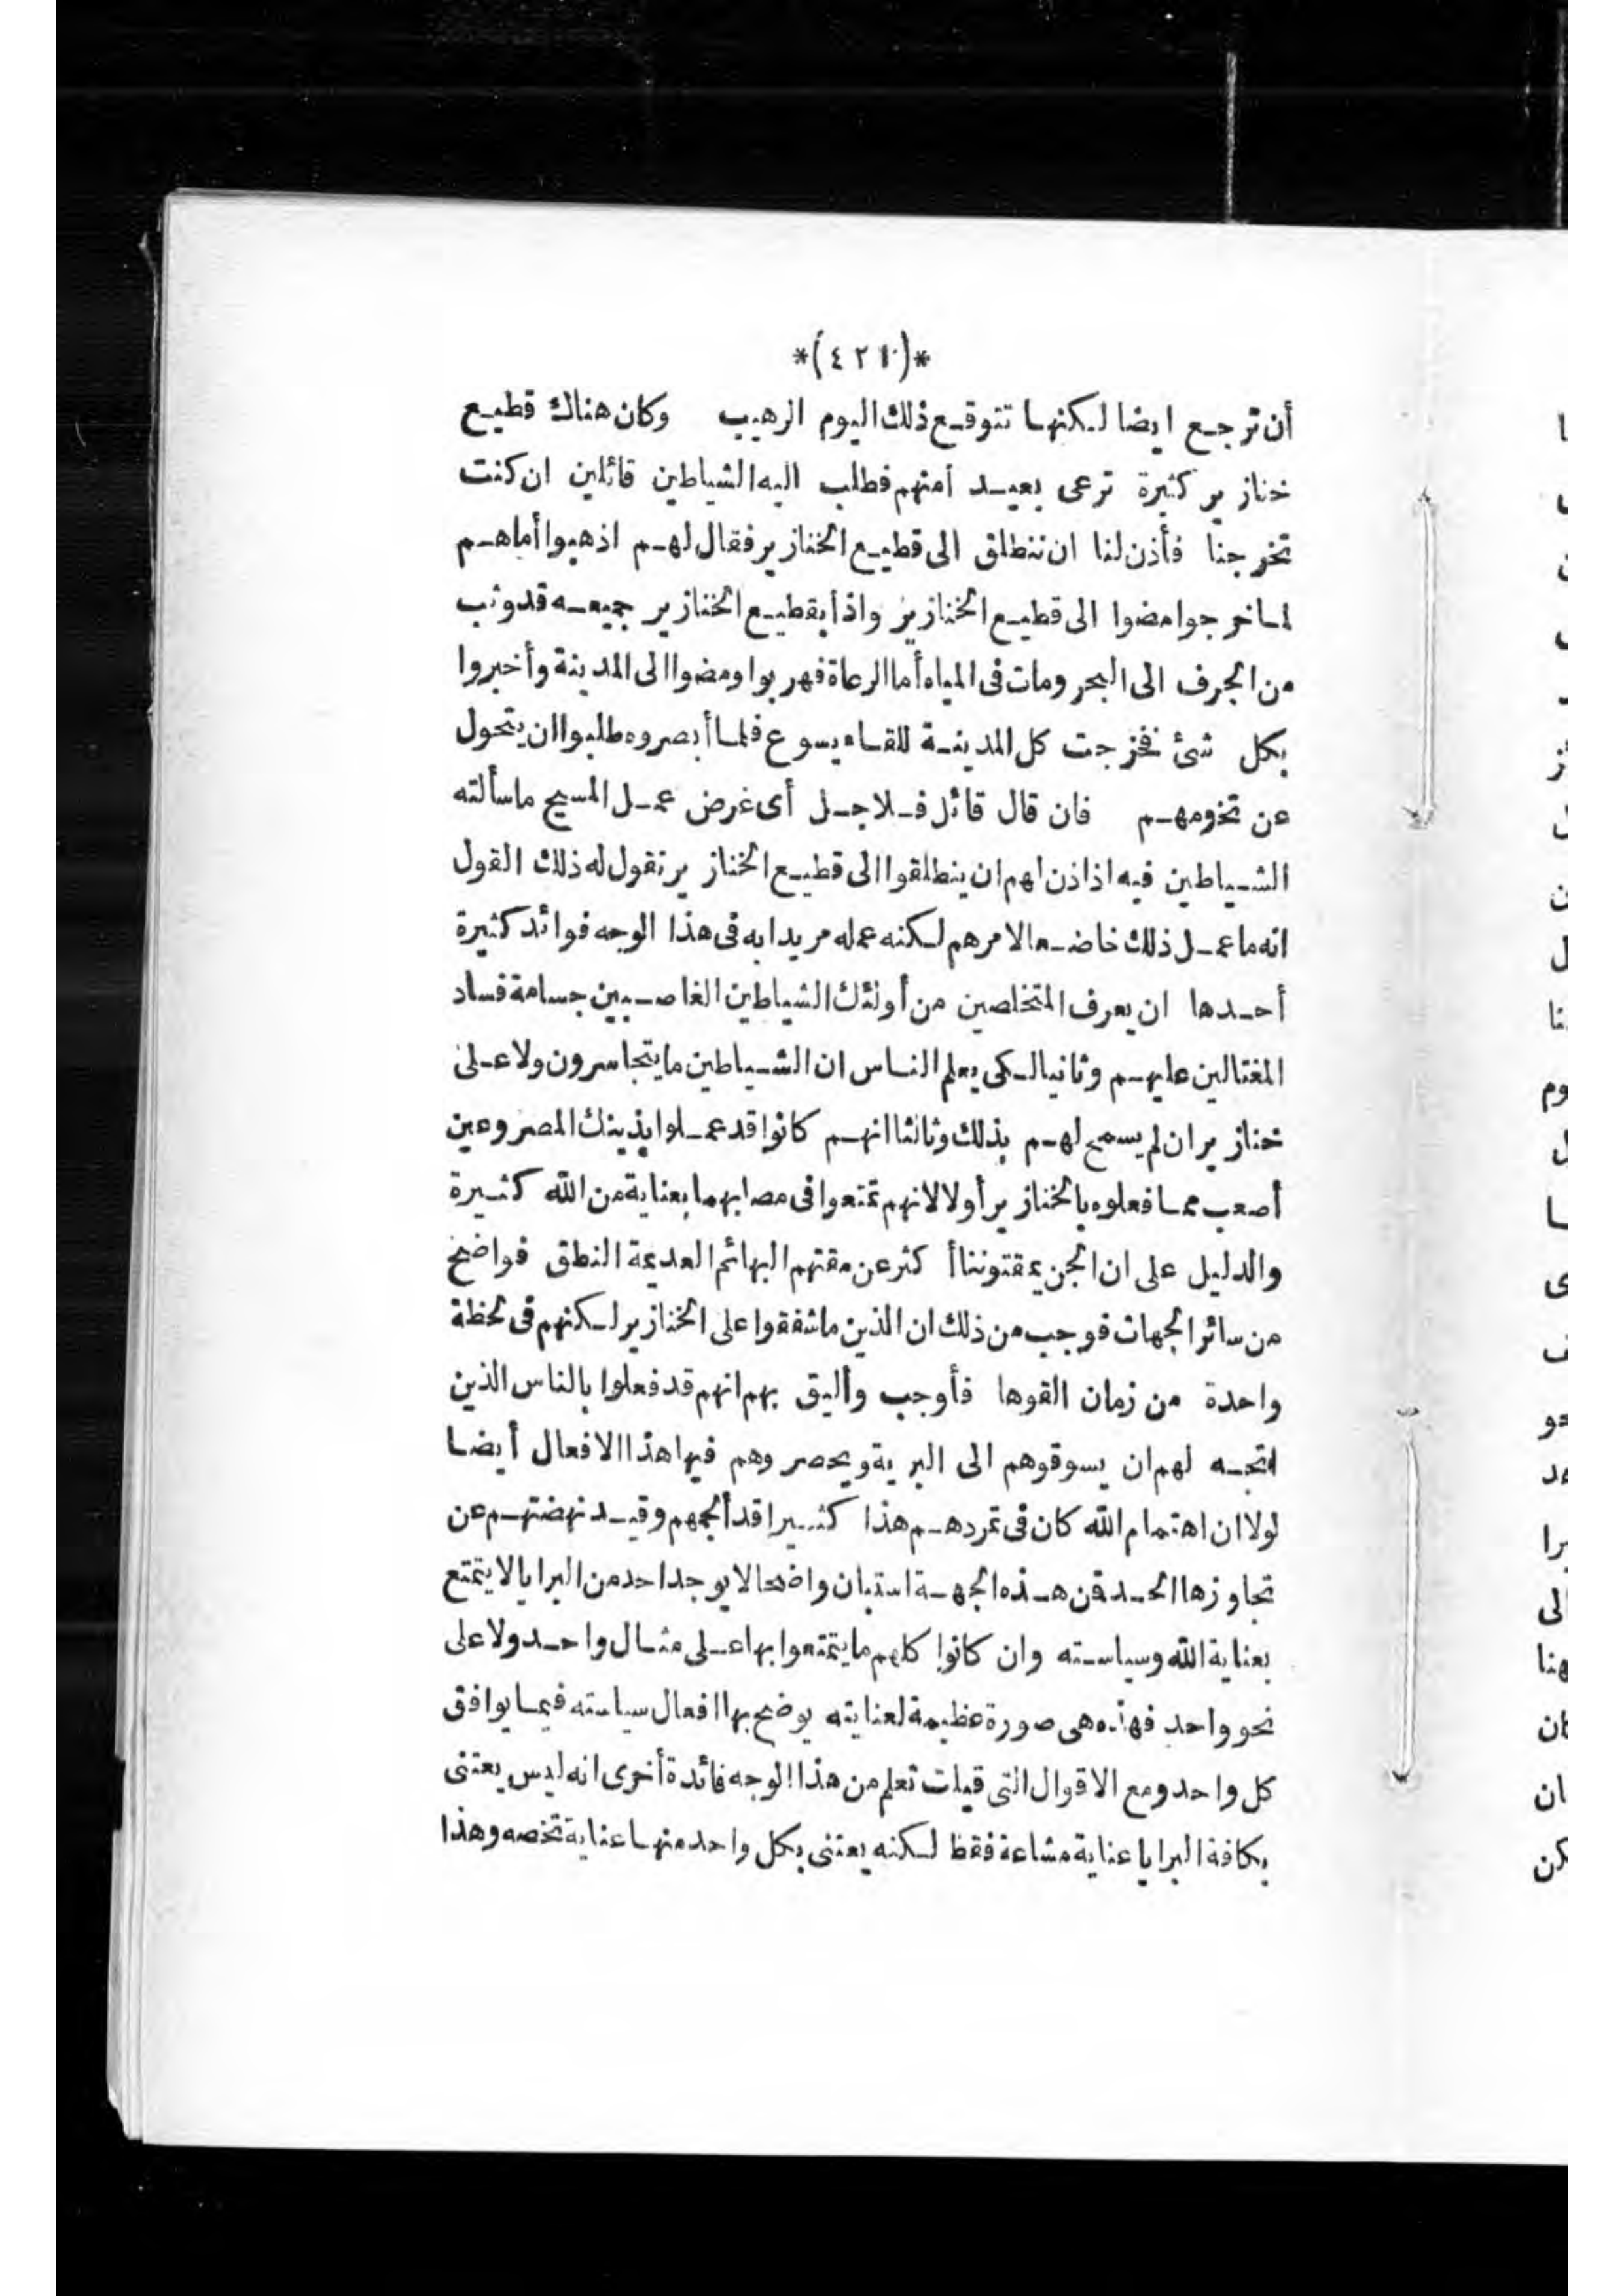 *(٤٢١)*
أن ترجع ايضا لكنها تتوقع ذلك اليوم الرهيب وكان هناك قطيع
خنازير كثيرة ترعى بعيد امنهم فطلب اليه الشياطين قائلين ان كنت
تخرجنا فأذن لنا ان ننطلق الى قطيع الخنازير فقال لهم اذهبوا أماهم
لما خرجوا مضوا الى قطيع الخنازير واذا بقطيع الخنازير جميعه قد وثب
من الجرف الى البحر ومات فى المياه أما الرعاة فهربوا ومضوا الى المدينة وأخبروا
بكل شئ فخرجت كل المدينة للقاء يسوع فلما أبصروه طلبوا ان يتحول
عن تخومهم فان قال قائل فلاجل أى غرض عمل المسيح ما سألته
الشياطين فيه اذ اذن لهم ان ينطلقوا الى قطيع الخنازير نقول له ذلك القول
انه ما عمل ذلك خاضعا لامرهم لكنه عمله مريدا به فى هذا الوجه فوائد كثيرة
أحدها ان يعرف المتخلصين من أولئك الشياطين الغاصبين جسامة فساد
المغتالين عليهم وثانيا لكى يعلم الناس ان الشياطين ما يتجاسرون ولا على
خنازير ان لم يسمح لهم بذلك وثالثا انهم كانوا قد عملوا بذينك المصروعين
أصعب مما فعلوه بالخنازير أولا لانهم تمتعوا فى مصابهما بعناية من الله كثيرة
والدليل على ان الجن يمقتوننا أكثر عن مقتهم البهائم العديمة النطق فواضح
من سائر الجهات فوجب من ذلك ان الذين ما شفقوا على الخنازير لكنهم فى لحظة
واحدة من زمان القوها فأوجب وأليق بهم انهم قد فعلوا بالناس الذين
اتجه لهم ان يسوقوهم الى البرية ويحصروهم فيها هذا الافعال أيضا
لولا ان اهتمام الله كان فى تمردهم هذا كثيرا قد ألجمهم وقيد نهضتهم عن
تجاوزها الحد فمن هذه الجهة استبان واضحا لا يوجد احد من البرايا لا يتمتع
بعناية الله وسياسته وان كانوا كلهم ما يتمتعوا بها على مثال واحد ولا على
نحو واحد فهذه هى صورة عظيمة لعنايته يوضح بها افعال سياسته فيما يوافق
كل واحد ومع الاقوال التى قيلت تعلم من هذا الوجه فائدة أخرى انه ليس يعتنى
بكافة البرايا عناية مشاعة فقط لكنه يعتنى بكل واحد منها عناية تخصه وهذا